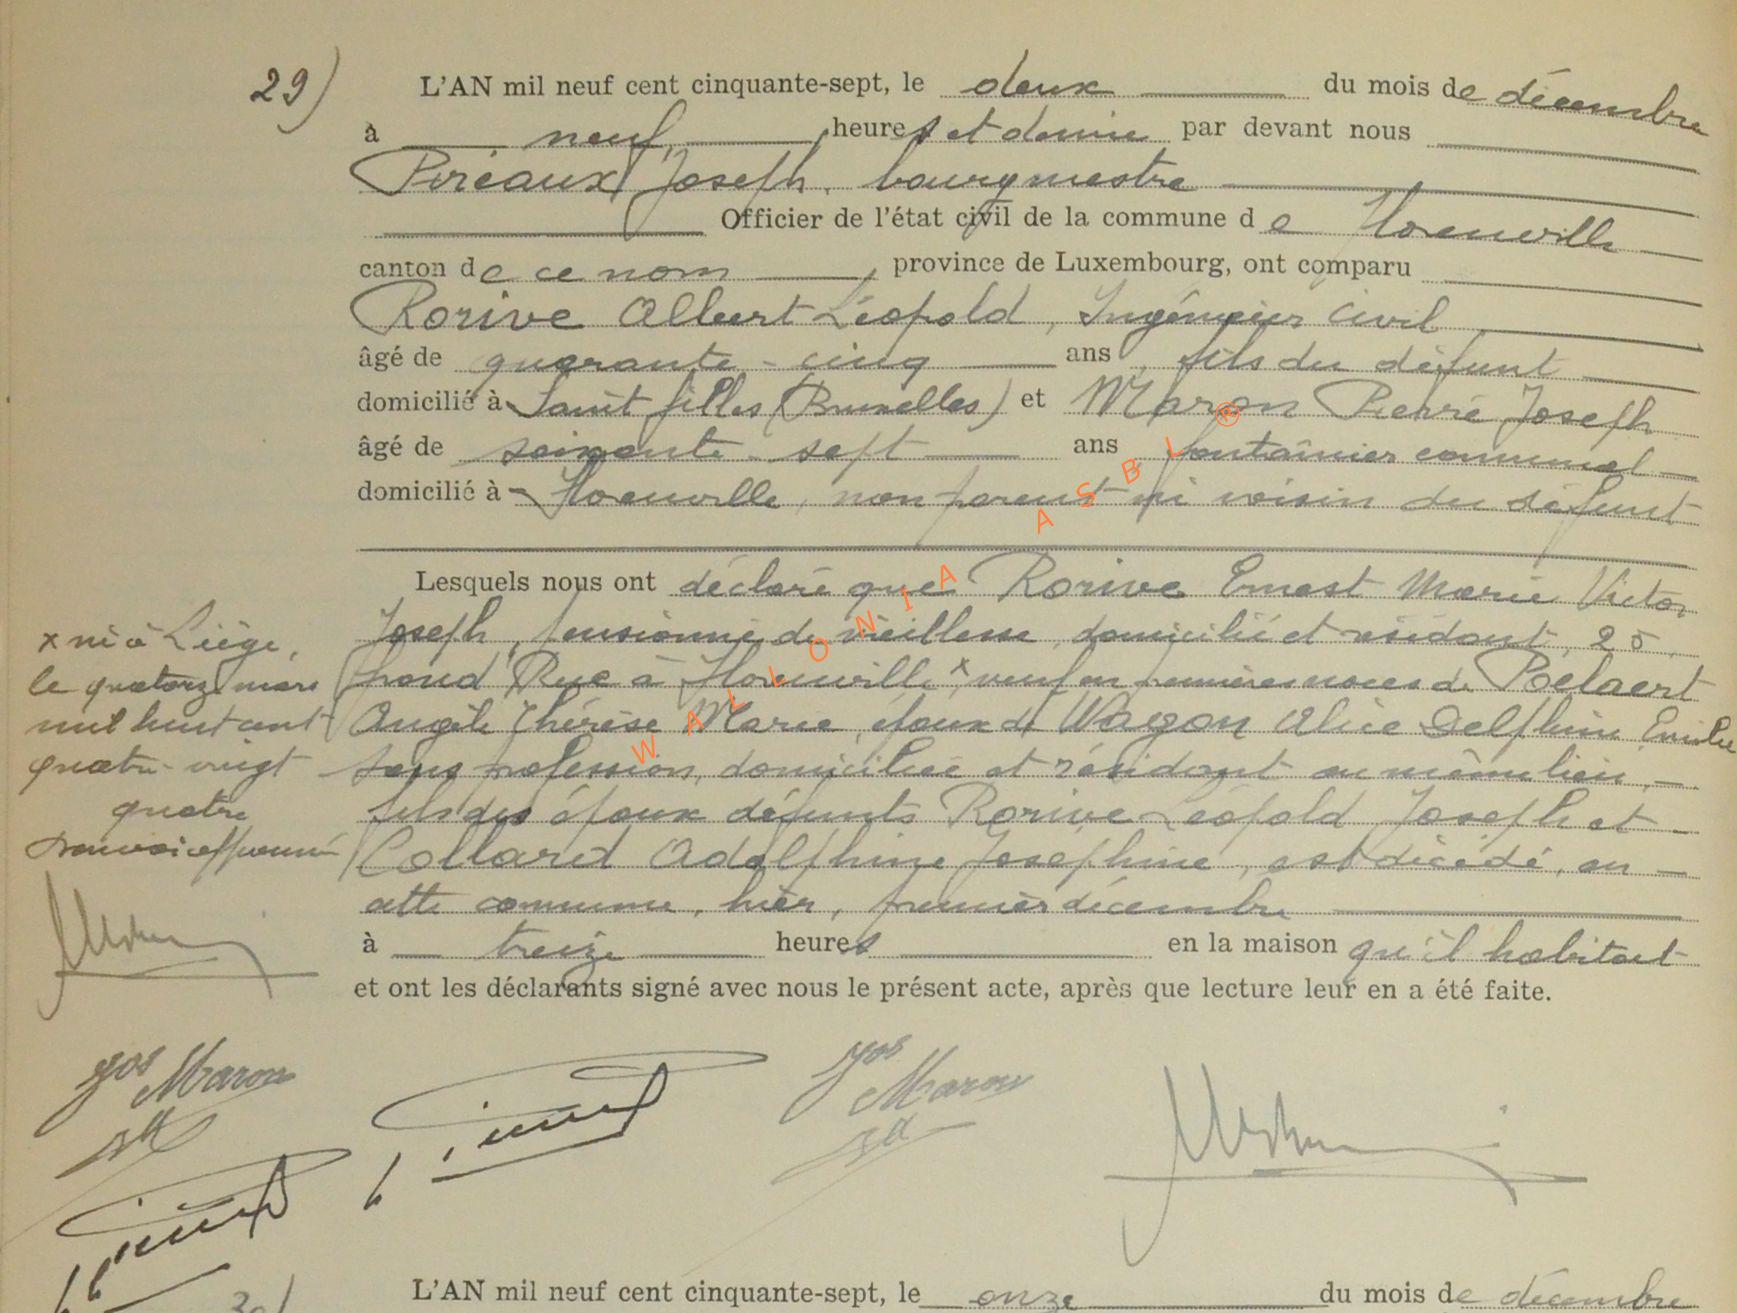 29)
L'AN mil neuf cent cinquante-sept, le deux du mois de décembre
à neuf heures et demie par devant nous
Piréaux Joseph, bourgmestre
Officier de l'état civil de la commune de Florenville
canton de ce nom, province de Luxembourg, ont comparu
Rorive Albert Léopold, Ingénieur Civil
âgé de quarante-cinq ans, fils du défunt
domicilié à Saint Gilles (Bruxelles) et Maron Pierre Joseph
âgé de soixante-sept ans, fontainier communal
domicilié à Florenville, non parent ni voisin du défunt
Lesquels nous ont déclaré que Rorive Ernest Marie Victor
Joseph, pensionné de vieillesse, domicilié et résidant, 25,
Grand'Rue à Florenville x, veuf en premières noces de Poelaert
Angèle Thérèse Marie, époux de Wagon Alice Delphine Emilie
sans profession, domiciliée et résidant au même lieu,
fils des époux défunts Rorive Léopold Joseph et
Collard Adolphine Josephine, est décédé, en
cette commune, hier, premier décembre
à treize heures en la maison qu'il habitait
et ont les déclarants signé avec nous le présent acte, après que lecture leur en a été faite.
x né à Liège,
le quatorze mars
mil huit cent
quatre-vingt
quatre
renvoi approuvé
Jos Maron
Jos Maron
WALLONIA ASBL ®
L'AN mil neuf cent cinquante-sept, le onze du mois de décembre
30/